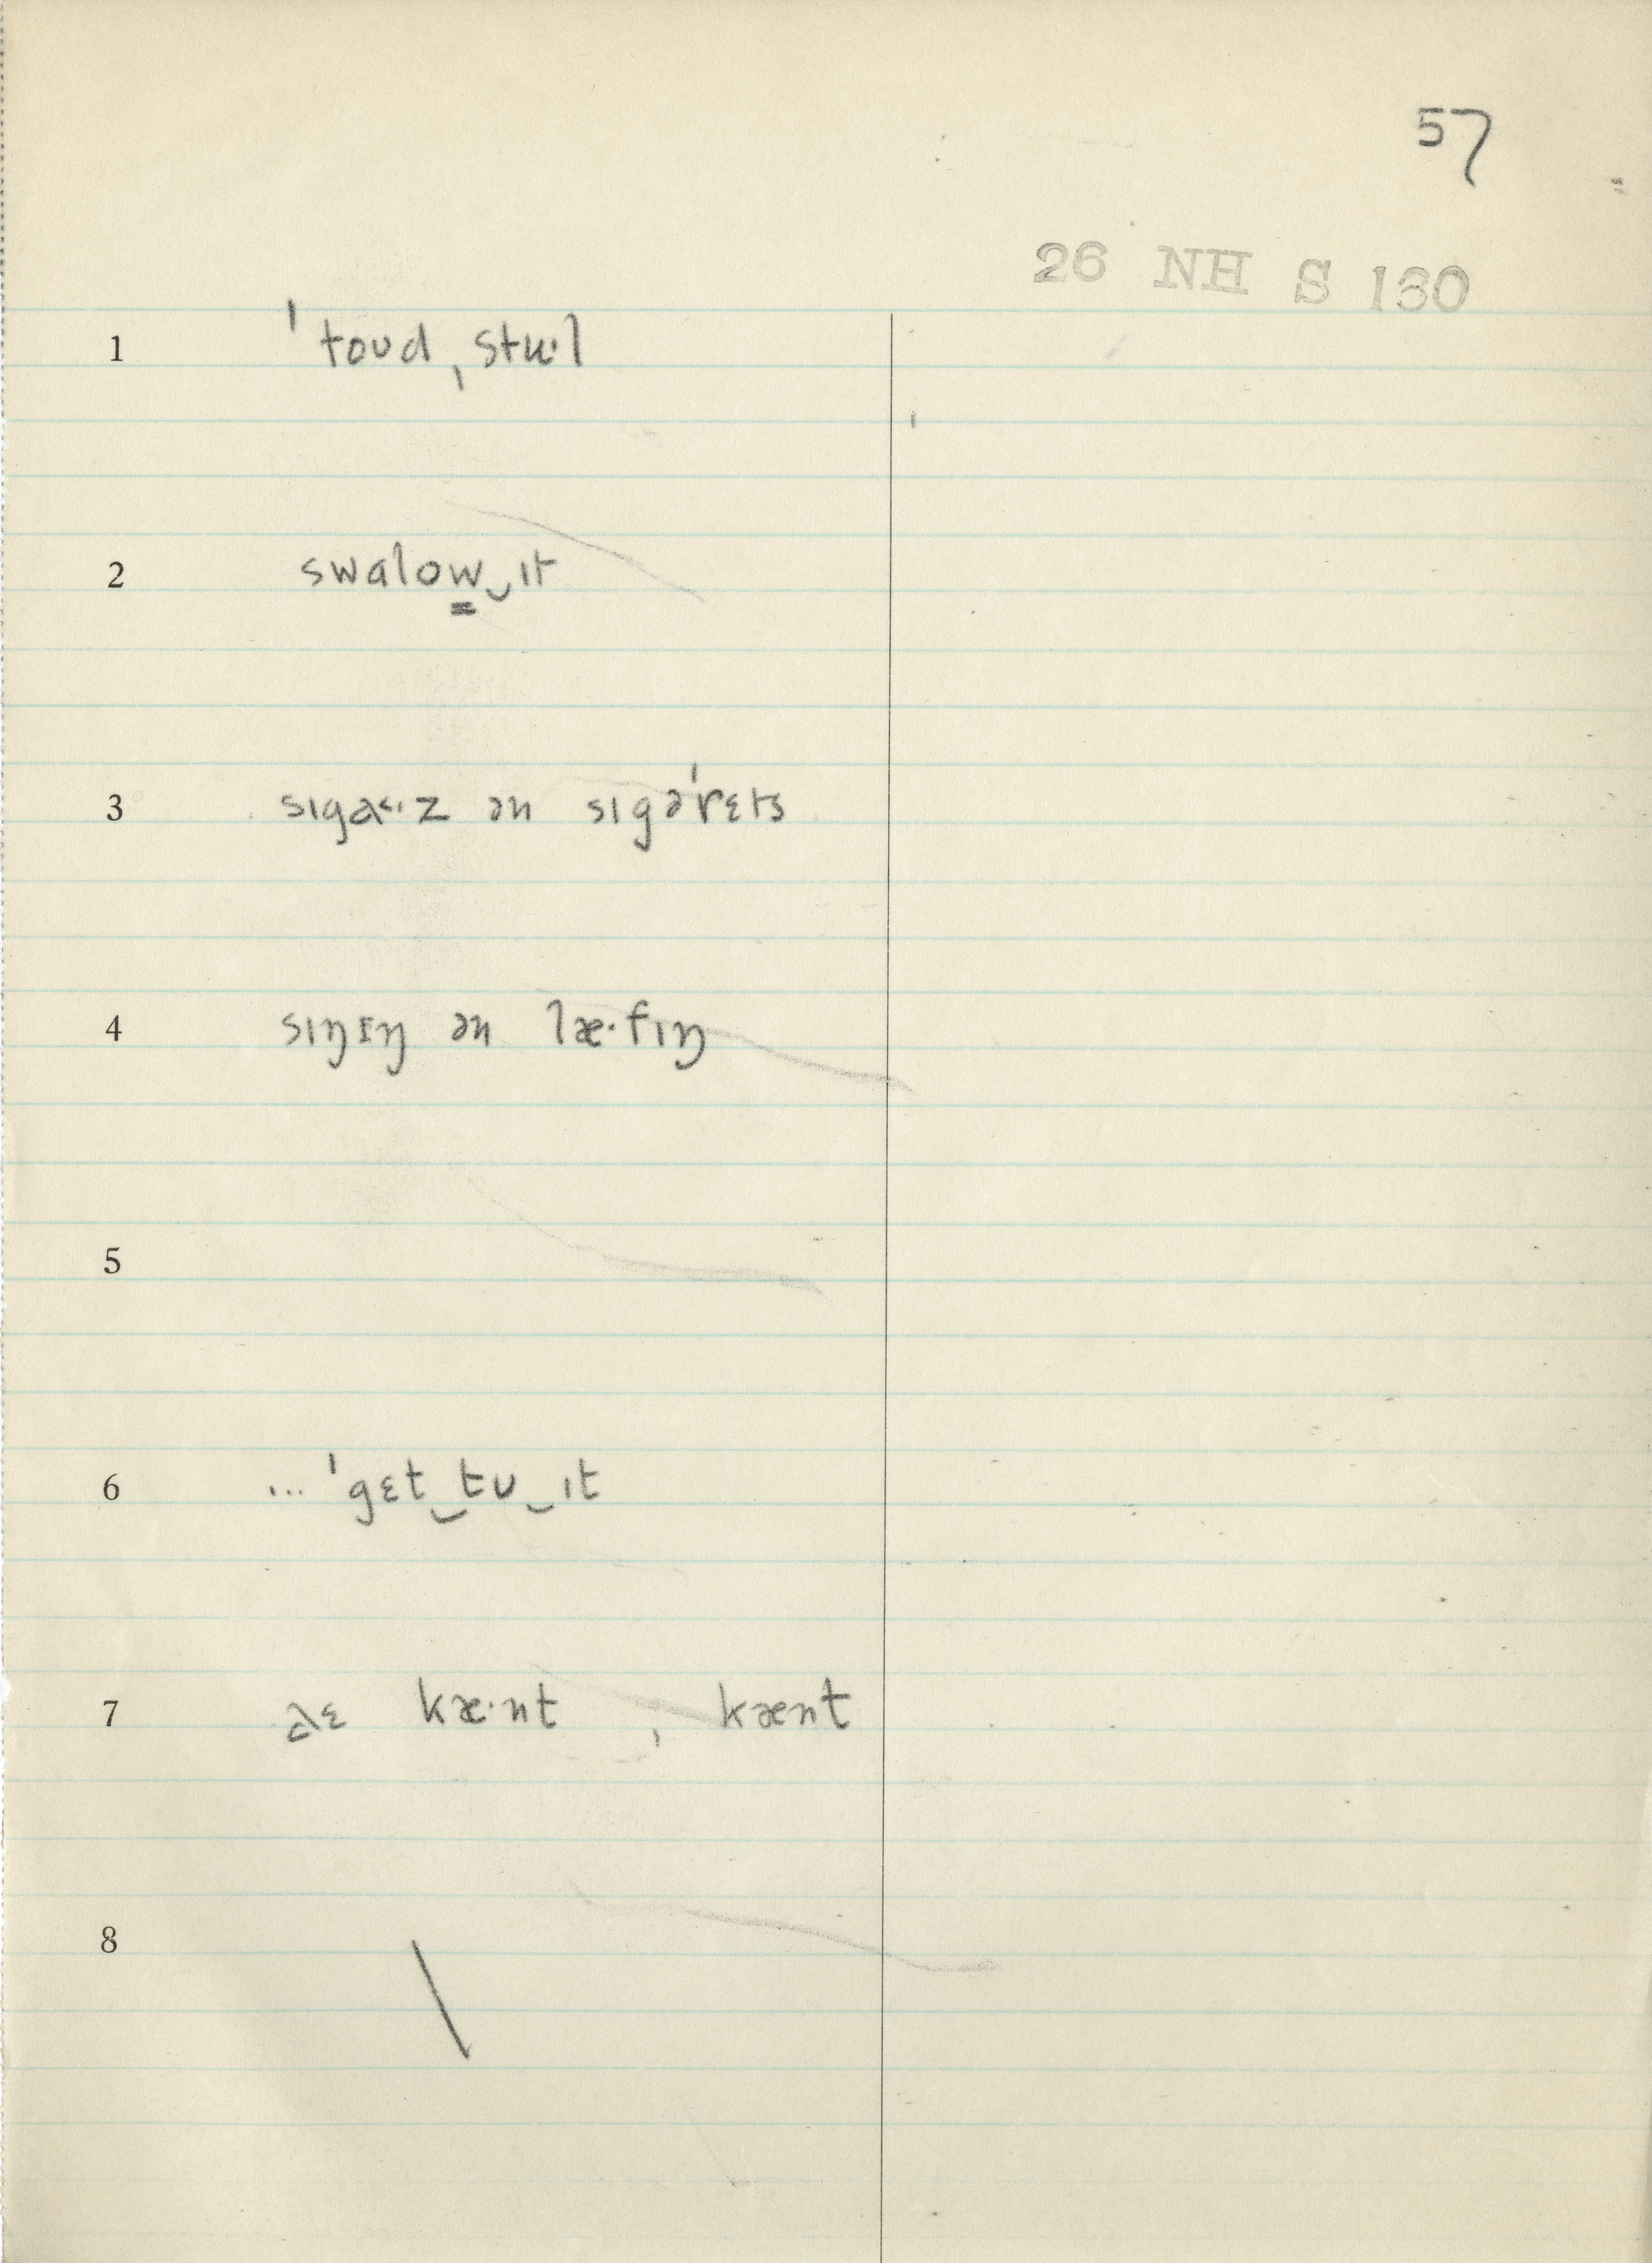 57
26 NH S 130
1 ˈtoʊd ˌstʉ·l
2 swalow̳‿ɪt
3 sɪgɑ˂·z ən sɪgəˈrɛts
4 sɪŋɪŋ ən læ·fɪŋ
5
6 ... ˈgɛt‿tʊ‿ɪt
7 kæ·nt , kænt
8 \